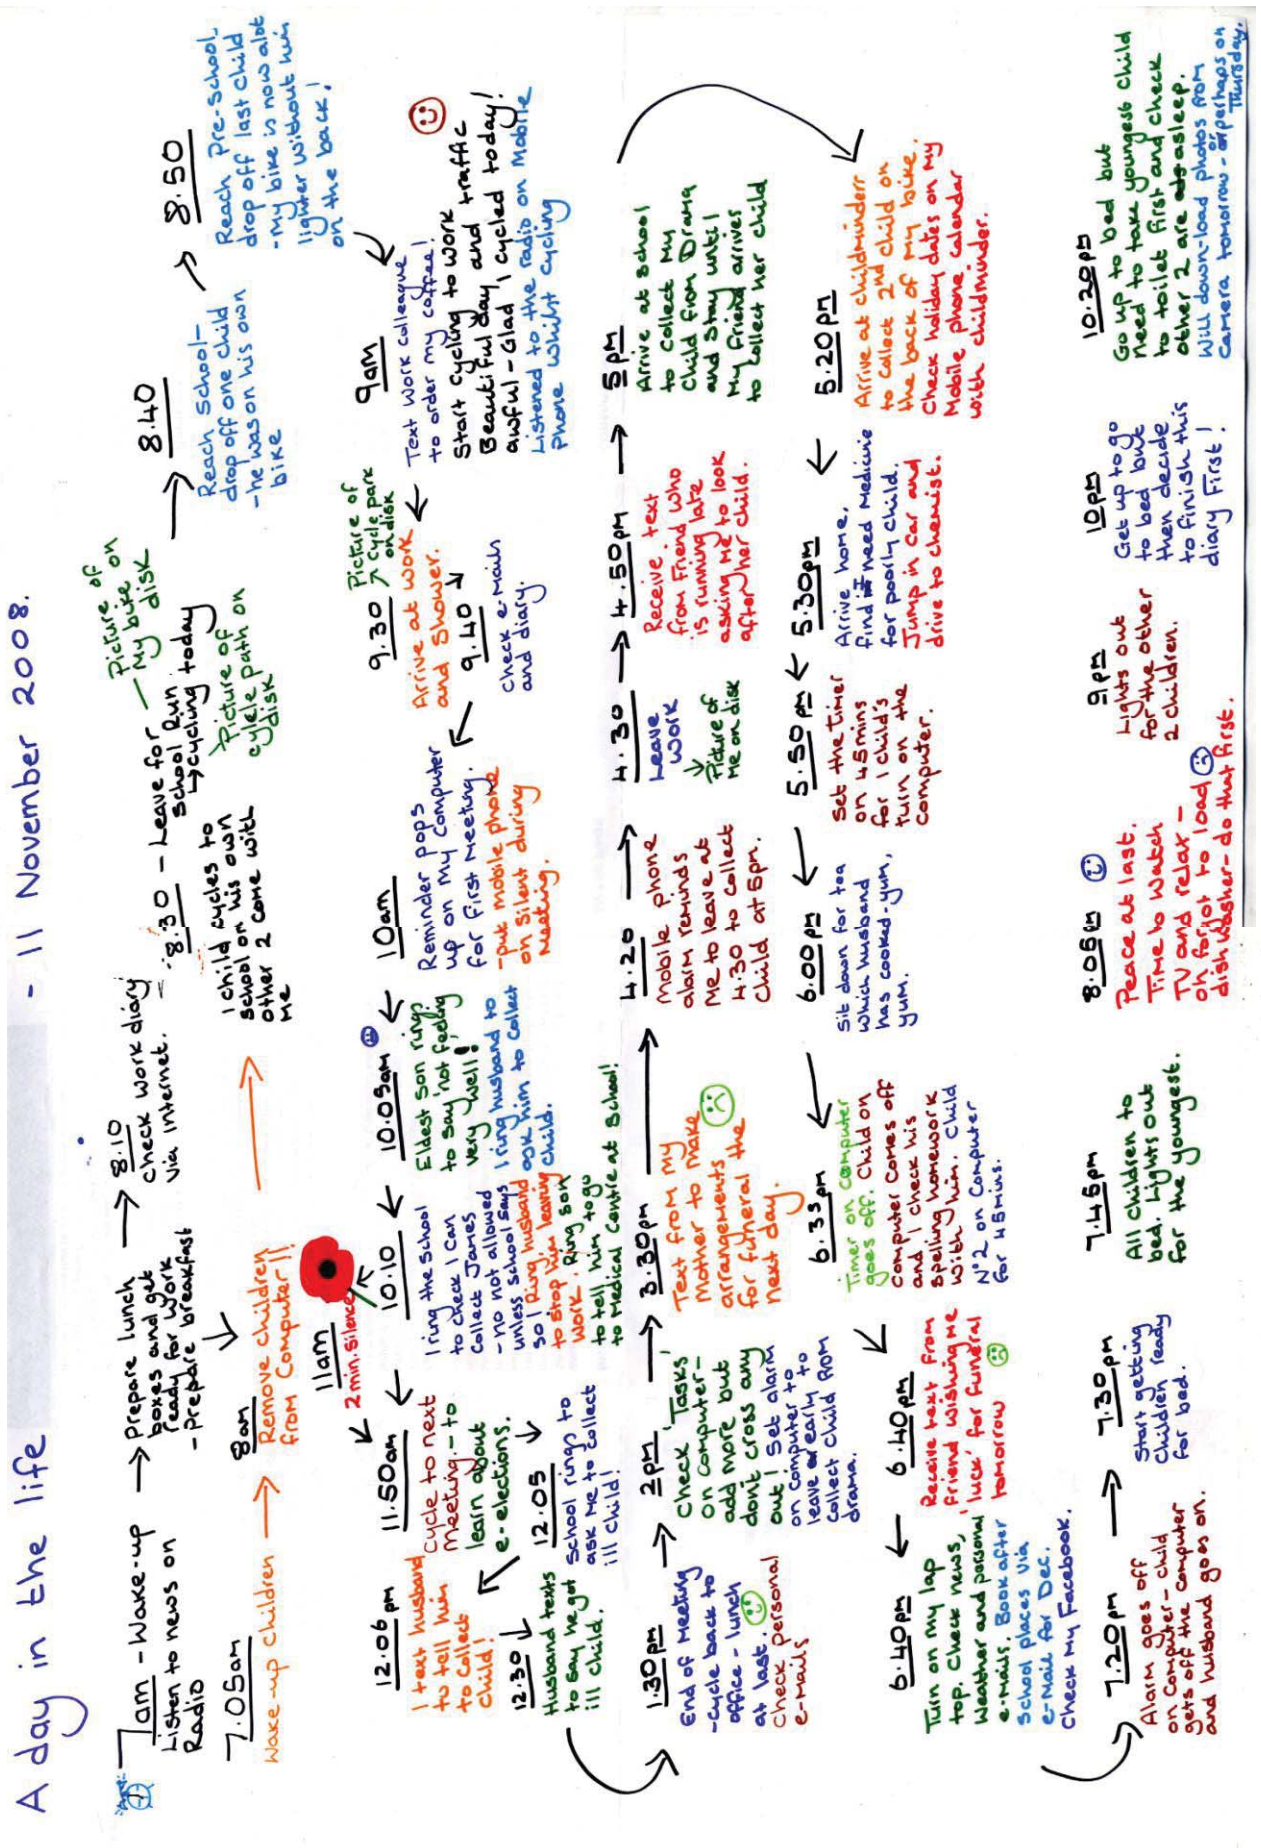 A day in the life - 11 November 2008.
7am - Wake-up
Listen to news on
Radio
prepare lunch
boxes and get
ready for work
- prepare breakfast
8.10
check work diary
via internet.
7.05am
Wake-up children
8am
Remove children
from Computer!!
8.30 - Leave for
school run.
↳cycling today
Picture of
my bike on
disk
1 child cycles to
school on his own
other 2 come with
me
Picture of
cycle path on
disk
8.40
Reach School-
drop off one child
- he was on his own
bike
8.50
Reach Pre-School,
drop off last child
- my bike is now alot
lighter without him
on the back!
9am
Text work colleague
to order my coffee!
Start cycling to work
Beautiful day and traffic
awful - Glad I cycled today!
Listened to the radio on Mobile
phone whilst cycling
9.30
Picture of
cycle park
on disk
Arrive at work
and Shower.
9.40
check e-mails
and diary.
10am
Reminder pops
up on my computer
for first meeting.
- put mobile phone
on silent during
meeting.
10.05am
Eldest son rings
to say not feeling
very well!
I ring husband to
ask him to collect
child.
10.10
I ring the school
to check I can
collect James
- no not allowed
unless school says
so! Ring husband
to stop him leaving
work. Ring son
to tell him to go
to Medical Centre at School!
11am
2 min. silence
11.50am
cycle to next
meeting. - to
learn about
e-elections.
12.05
School rings to
ask me to collect
ill child!
12.06pm
I text husband
to tell him
to collect
child!
12.30
Husband texts
to say he got
ill child.
1.30pm
End of Meeting
- cycle back to
office - lunch
at last.
Check personal
e-mails
2pm
Check 'Tasks'
on computer-
add more but
don't cross any
out! Set alarm
on computer to
leave early to
collect child from
drama.
3.30pm
Text from my
Mother to make
arrangements
for funeral the
next day.
4.20
Mobile phone
alarm reminds
me to leave at
4.30 to collect
Child at 5pm.
4.30
Leave
work
Picture of
me on disk
4.50pm
Receive text
from friend who
is running late
asking me to look
after her child.
5pm
Arrive at School
to collect my
child from Drama
and stay until
my friend arrives
to collect her child
5.20pm
Arrive at childminders
to collect 2nd child on
the back of my bike.
Check holiday dates on my
Mobile phone calendar
with childminder.
5.30pm
Arrive home,
find I need medicine
for poorly child.
Jump in car and
drive to chemist.
5.50pm
Set the timer
on 45mins
for 1 child's
turn on the
computer.
6.00pm
Sit down for tea
which husband
has cooked - yum,
yum.
6.35pm
Timer on computer
goes off. Child on
computer comes off
and I check his
spelling homework
with him. Child
Nº2 on computer
for 45mins.
6.40pm
Receive text from
friend wishing me
'luck' for funeral
tomorrow
6.40pm
Turn on my lap
top. Check news,
weather and personal
e-mails. Book after
school places via
e-mail for Dec.
Check my Facebook.
7.20pm
Alarm goes off
on computer - child
gets off the computer
and husband goes on.
7.30pm
Start getting
children ready
for bed.
7.45pm
All children to
bed. Lights out
for the youngest.
8.05pm
Peace at last.
Time to watch
TV and relax -
oh forgot to load
dishwasher - do that first.
9pm
Lights out
for the other
2 children.
10pm
Get up to go
to bed but
then decide
to finish this
diary first!
10.20pm
Go up to bed but
need to take youngest child
to toilet first and check
other 2 are asleep.
Will down-load photos from
camera tomorrow - or perhaps on
Thursday.